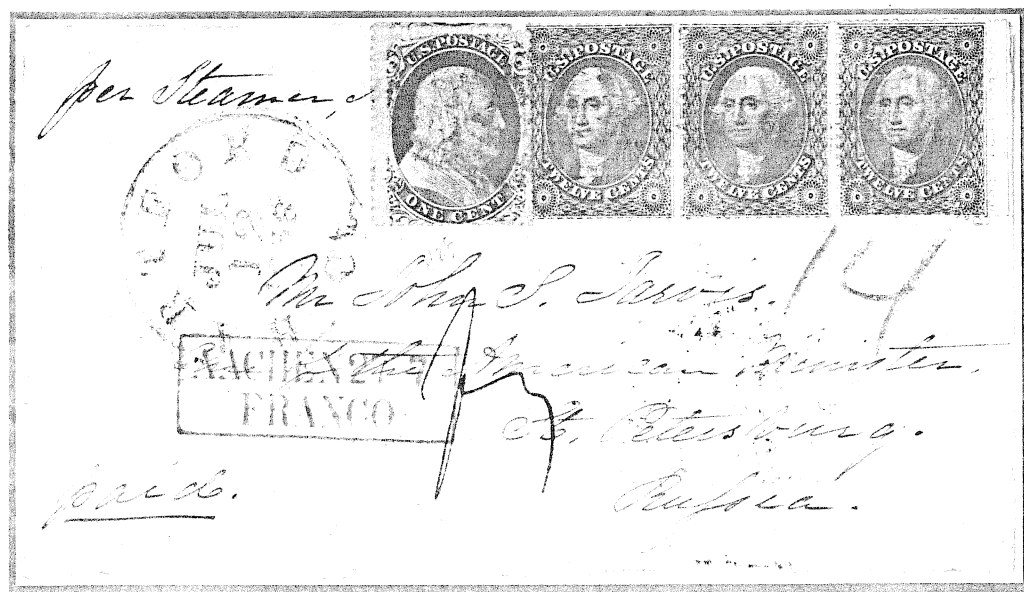 per Steamer,
U.S. POSTAGE
ONE CENT
U.S. POSTAGE
TWELVE CENTS
U.S. POSTAGE
TWELVE CENTS
U.S. POSTAGE
TWELVE CENTS
14
Mr John S. Jarvis.
AACHEN 27 7
FRANCO
the American Minister.
St. Petersburg.
Russia.
paid.